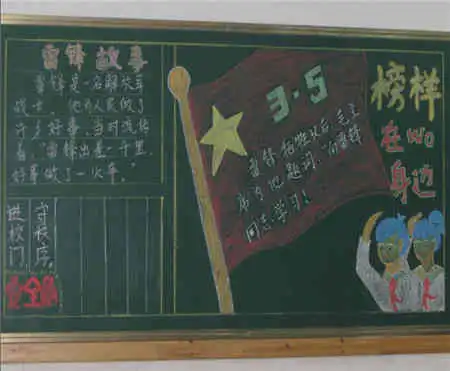 雷锋故事
雷锋是一名解放军
战士，他为人民做了
许多好事，当时流传
着，“雷锋出差一千里，
好事做了一火车。”
进校门，
守秩序，
全
3·5
雷锋牺牲以后，毛主
席为他题词：“向雷锋
同志学习！
榜样
在WO
身边